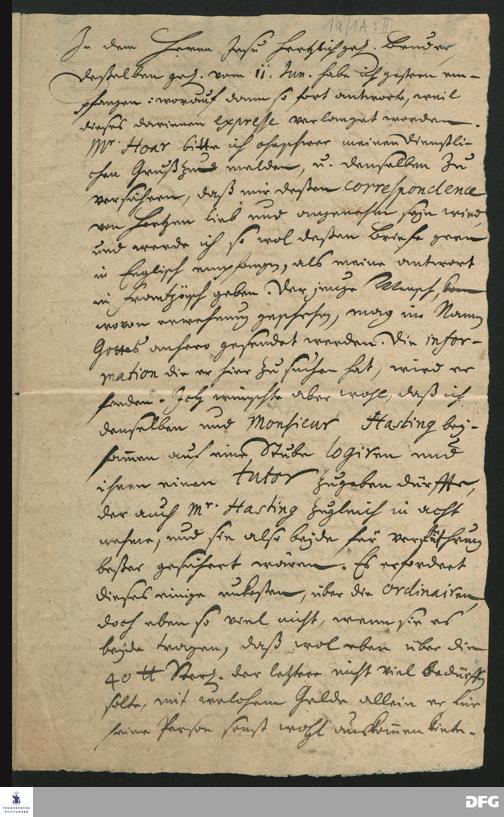 1a/1A : II
In dem Herrn Jesu hertzlich gel. Bruder,
Deßelben gel. vom 11. Jun. habe ich gestern em-
pfangen: worauf dann so fort antworte, weil
dieses darinnen expresse verlanget worden.
Mr. Hoar bitte ich ohnschwer meinen dienstli-
chen Gruß zu melden, u. denselben zu
versichern, daß mir deßen correspondence
von Hertzen lieb und angenehm seyn wird,
und werde ich so wol deßen Briefe gern
in Englisch empfangen, als meine antwort
in Frantzösch geben. Der junge Mensch
wovon erwehnung geschehen, mag im Namen
Gottes anhero gesendet werden. Die infor-
mation die er hier zu suchen hat, wird er
finden. Ich wünschte aber wohl, daß ich
denselben und Monsieur Hasting bey-
sammen auf eine Stube logiren und
ihnen einen tutor zugeben dürffte,
der auch Mr. Hasting zugleich in acht
nehme, und sie also beyde für verführung
beßer gesichert wären. Es erfordert
dieses einige unkosten, über die ordinairen,
doch eben so viel nicht, wenn sie es
beyde tragen, daß wol eben über die
40 tt Sterl. der letztere nicht viel bedürffen
solte, mit welchem Gelde allein er für
seine Person sonst wohl auskommen könte.
FRANCKESCHE STIFTUNGEN
DFG